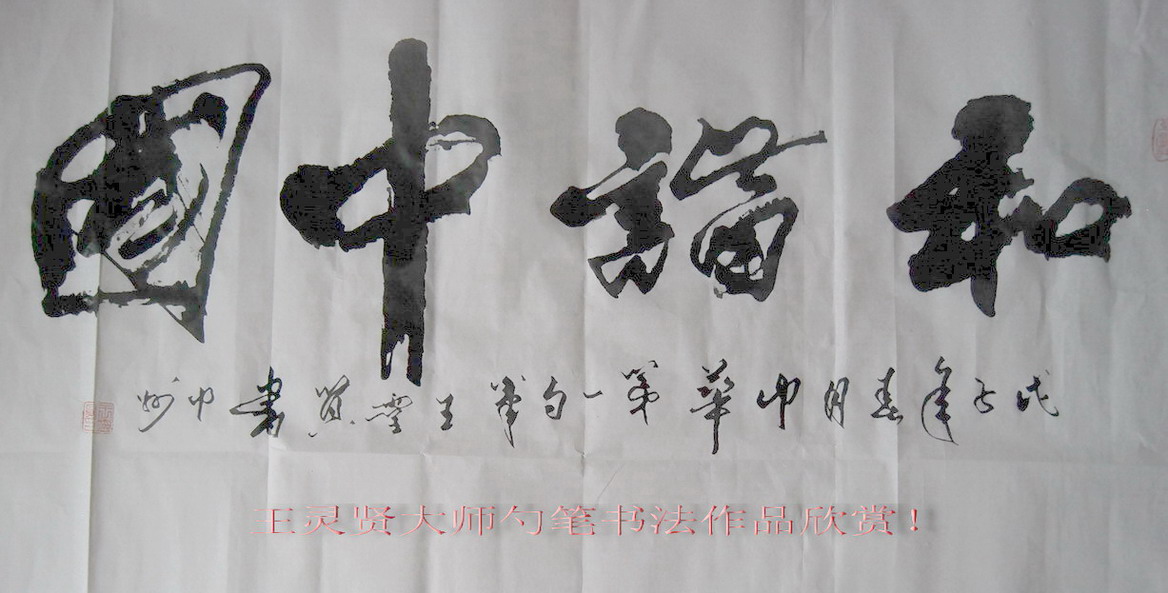 和諧中國
戊子年春月中華第一勺筆王靈賢書中州
王灵贤大师勺笔书法作品欣赏！